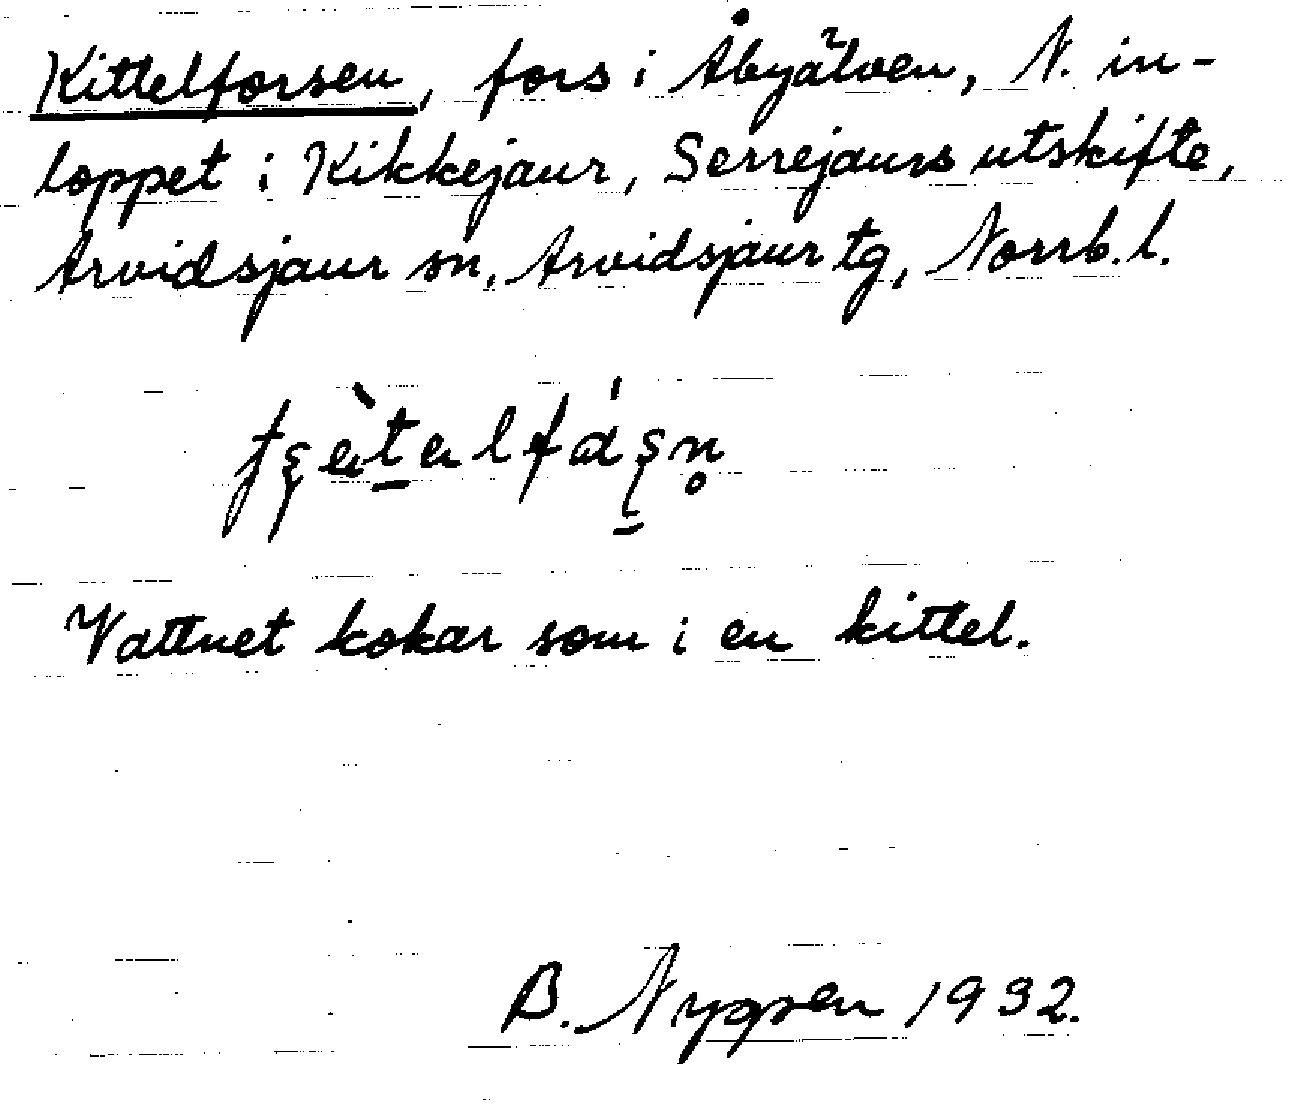 Kittelforsen, fors i Åbyälven, N. in-
loppet i Kikkejaur, Serrejaurs utskifte,
Arvidsjaur sn, Arvidsjaur tg, Norrb.l.
Vattnet kokar som i en kittel.
B. 1932.